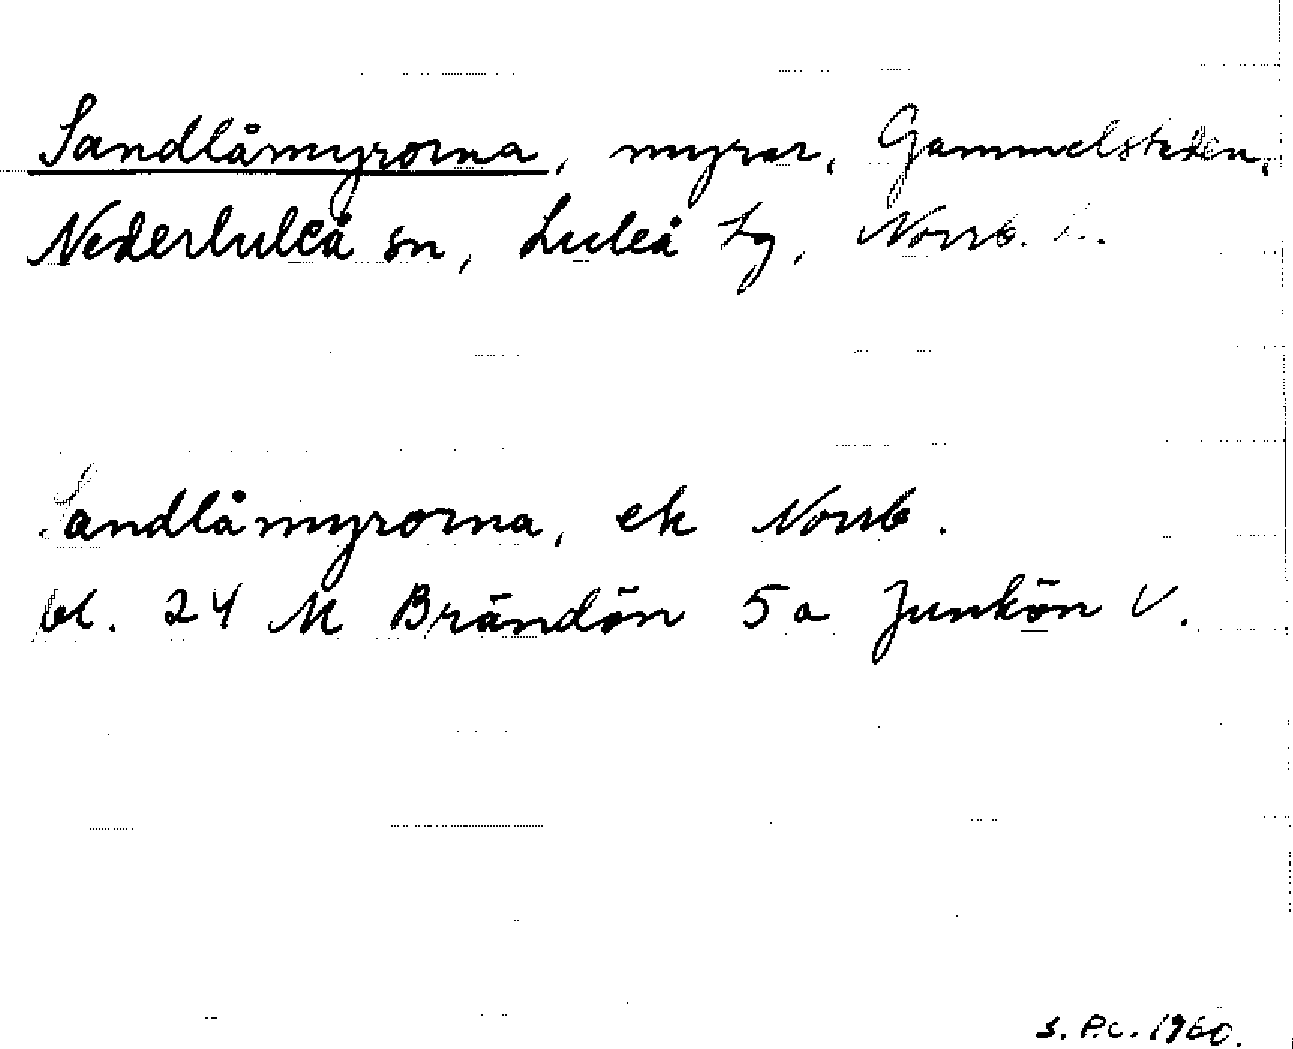 Sandlåmyrorna, myrar, Gammelstaden,
Nederluleå sn, Luleå tg, Norrb. l.
Sandlåmyrorna, ek Norrb.
bl. 24 M Brändön 5a Junkön V.
S. P.C. 1960.